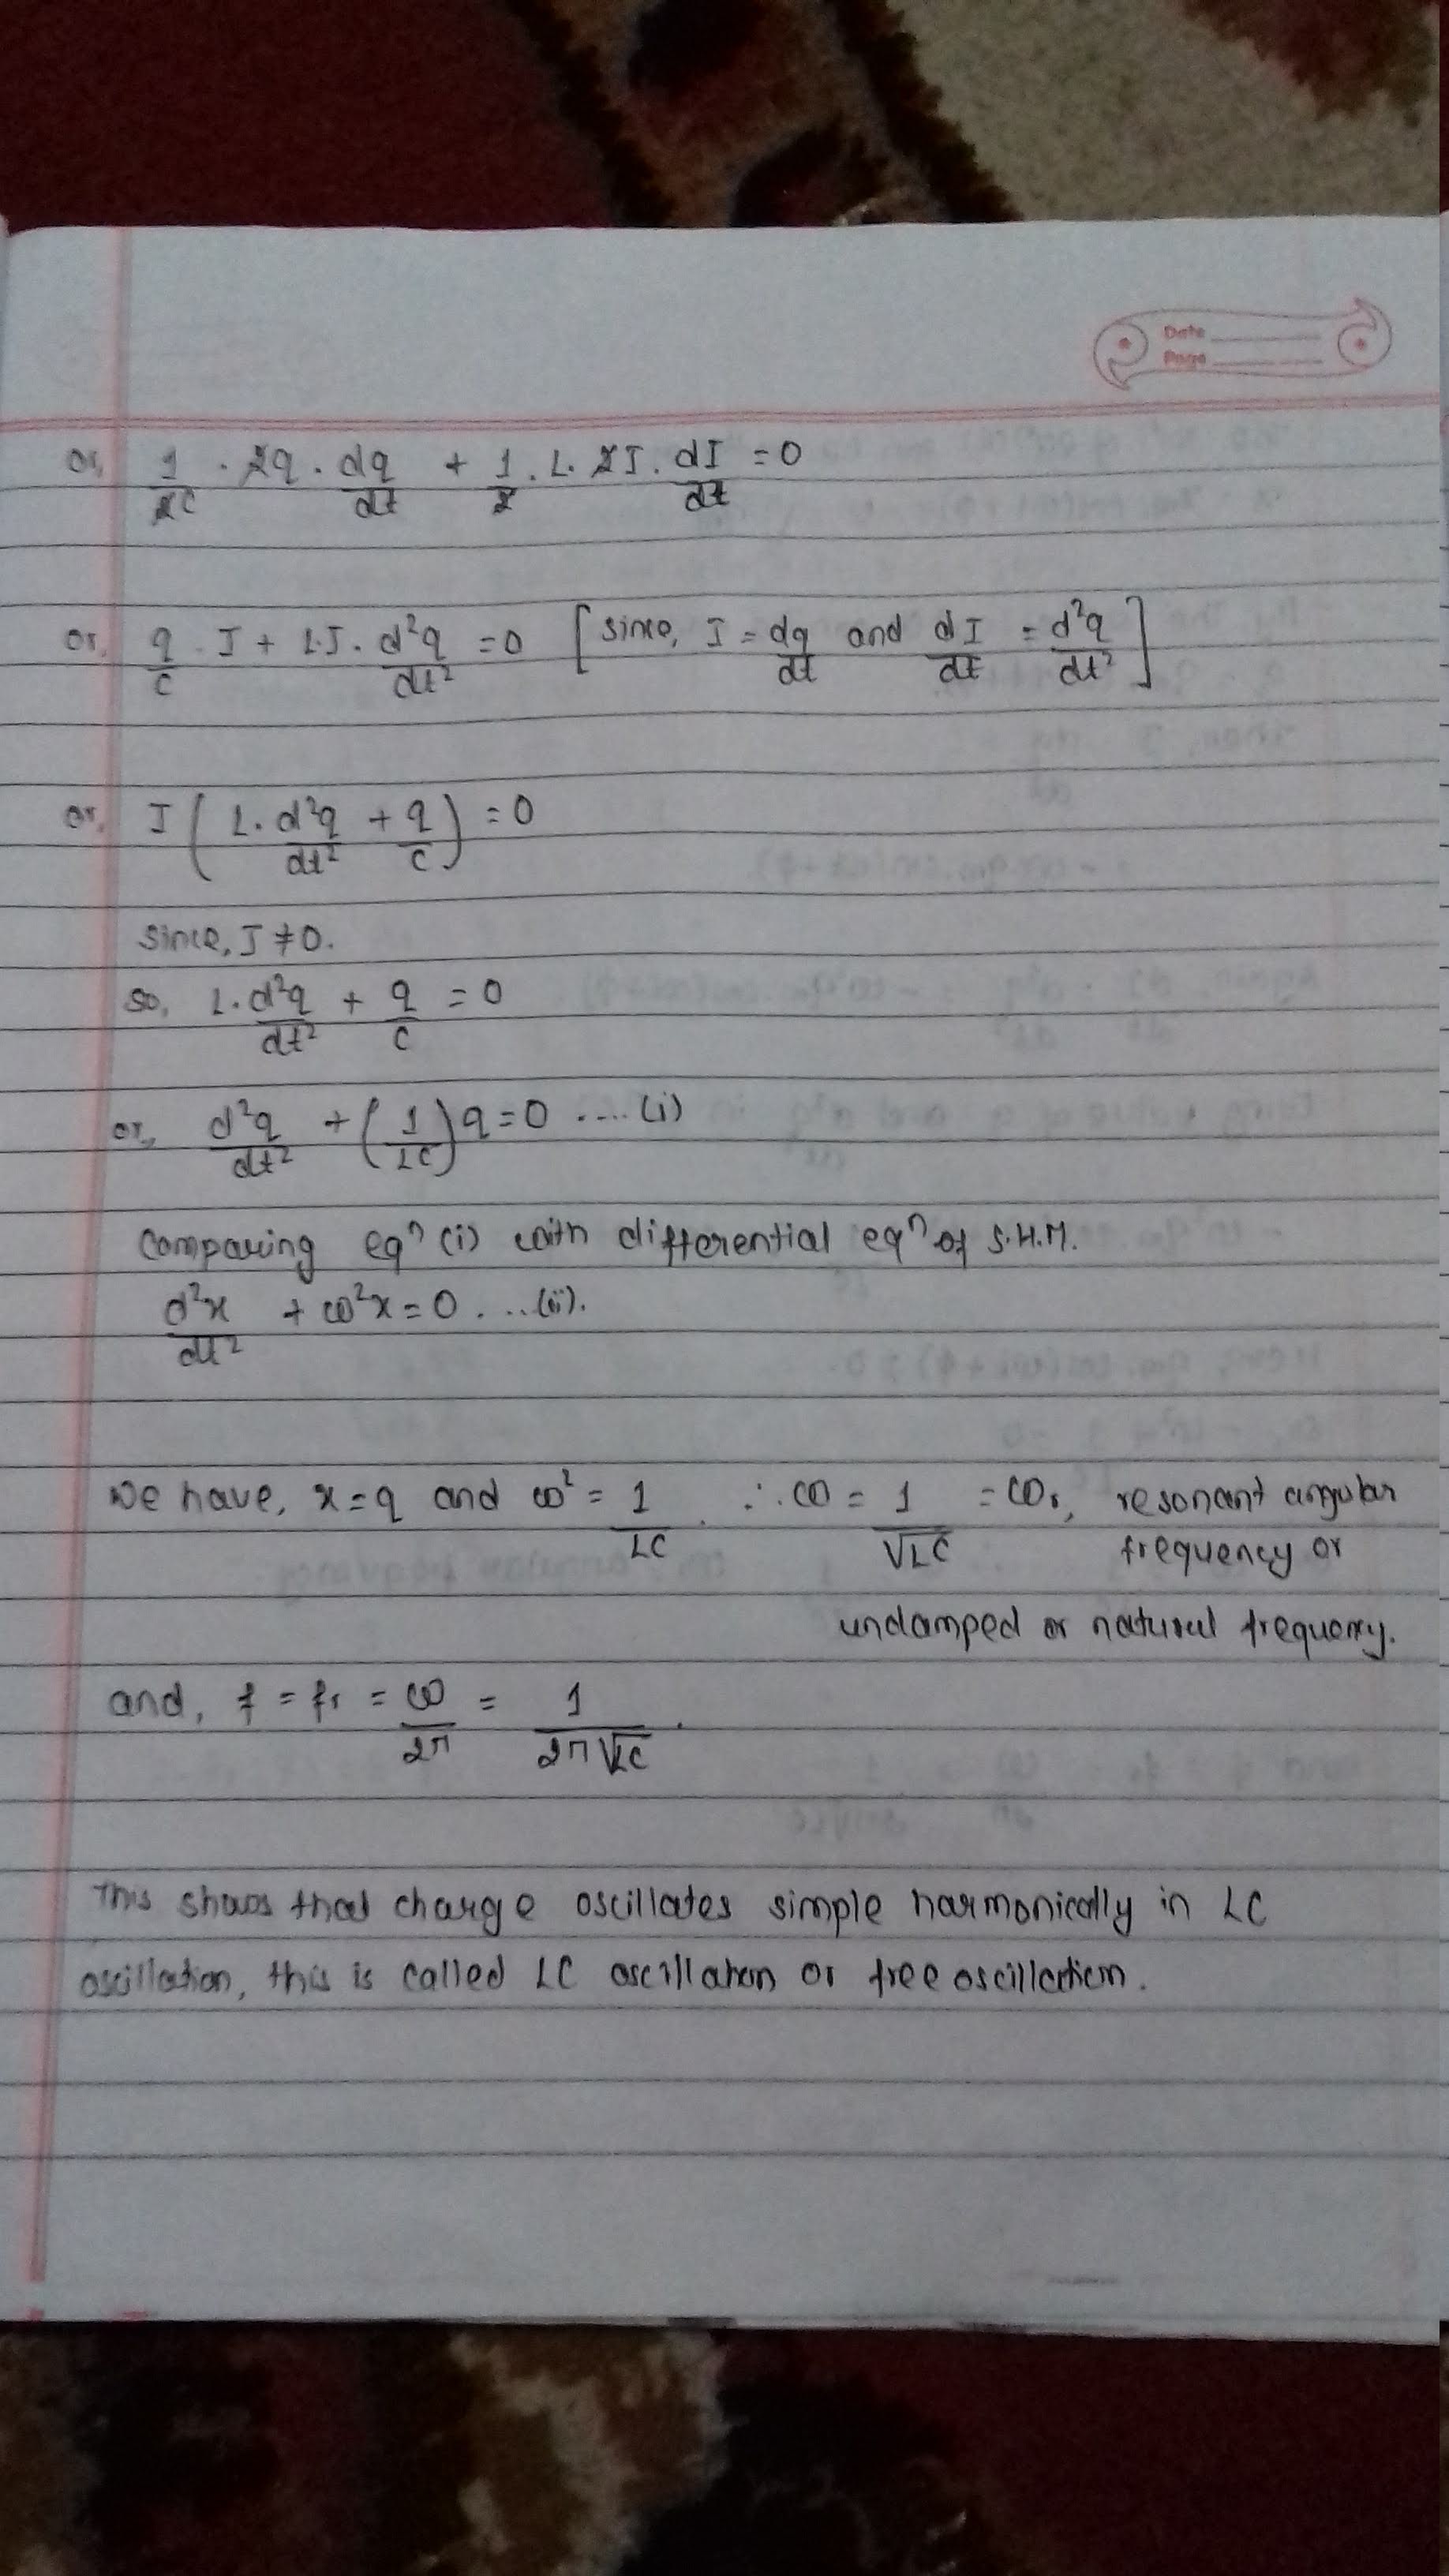 Date
Page
or, 1/2C · 2q · dq/dt + 1/2 · L · 2I · dI/dt = 0
or, q/C · I + L·I · d²q/dt² = 0 [since, I = dq/dt and dI/dt = d²q/dt²]
or, I (L · d²q/dt² + q/C) = 0
since, I ≠ 0.
so, L · d²q/dt² + q/C = 0
or, d²q/dt² + (1/LC) q = 0 .... (i)
Comparing eqⁿ (i) with differential eqⁿ of S.H.M.
d²x/dt² + ω²x = 0 . ...(ii).
we have, x = q and ω² = 1/LC . ∴ ω = 1/√LC = ωr, resonant angular
frequency or
undamped or natural frequency.
and, f = fr = ω/2π = 1/2π√LC .
This shows that charge oscillates simple harmonically in LC
oscillation, this is called LC oscillation or free oscillation.